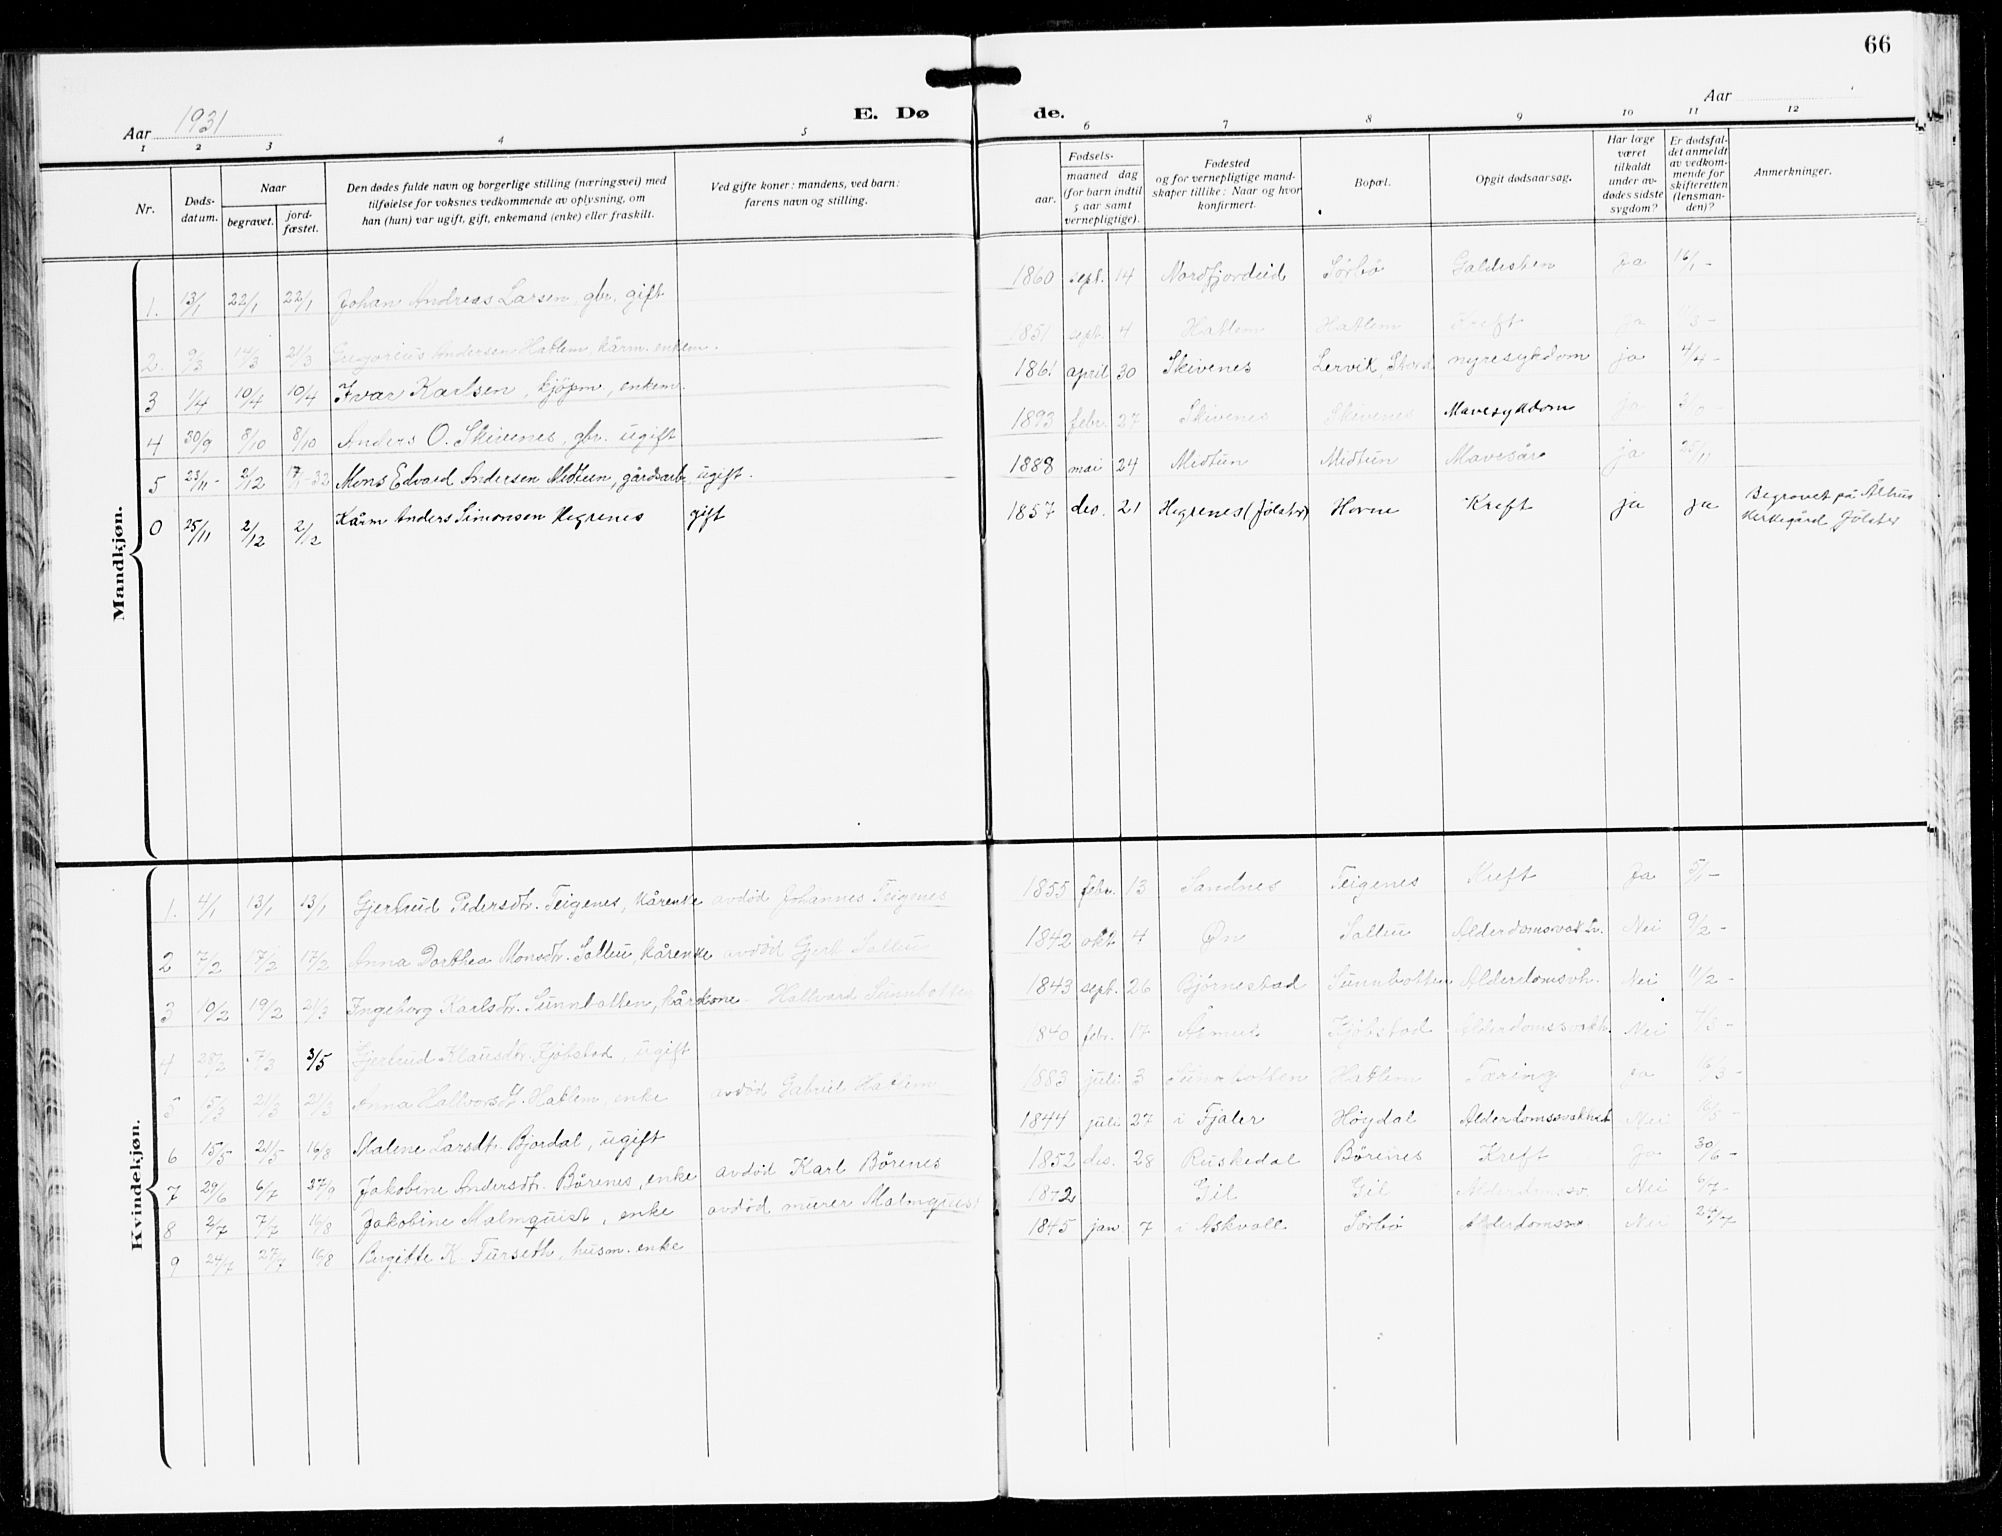 66
Aar 1931
E. Døde.
Aar
1 2 3 4 5 6 7 8 9 10 11 12
Nr.
Døds-
datum.
Naar
begravet.
jord-
fæstet.
Den dødes fulde navn og borgerlige stilling (næringsvei) med
tilføielse for voksnes vedkommende av oplysning, om
han (hun) var ugift, gift, enkemand (enke) eller fraskilt.
Ved gifte koner: mandens, ved barn:
farens navn og stilling.
Fødsels-
aar.
maaned dag
(for barn indtil
5 aar samt
vernepligtige).
Fødested
og for vernepligtige mand-
skaper tillike: Naar og hvor
konfirmert.
Bopæl.
Opgit dødsaarsag.
Har læge
været
tilkaldt
under av-
dødes sidste
sygdom?
Er dødsfal-
det anmeldt
av vedkom-
mende for
skifteretten
(lensman-
den)?
Anmerkninger.
Mandkjøn.
1. 13/1 22/1 22/1 Johan Andreas Larsen, gbr. gift 1860 sept. 14 Nordfjordeid Sørbø Galdesten Ja 16/1 -
2. 9/3 14/3 21/3 Gregorius Andersen Hatlem, kårm. enkem. 1851 sept. 4 Hatlem Hatlem Kreft ja 11/3 -
3 1/4 10/4 10/4 Ivar Karlsen, kjøpm, enkem. 1861 april 30 Skivenes Lervik, nyresykdom ja 4/4 -
4 30/9 8/10 8/10 Anders O. Skivenes, gbr. ugift 1893 febr. 27 Skivenes Skivenes Mavesykdom ja
5 23/11 - 2/12 17/1-32 Mons Edvard Andersen Midtun, gårdsarb. ugift. 1888 mai 24 Midtun Midtun Mavesår ja 25/11
0 25/11 2/12 2/12 Kårm Anders Simonsen Hegrenes gift 1857 des. 21 Hegrenes (Jølster) Horne Kreft ja ja Begravet på Ålhus
kirkegård, Jølster
Kvindekjøn.
1. 4/1 13/1 13/1 Gjertrud Pedersdtr. Teigenes, kårenke avdød Johannes Teigenes 1855 febr. 13 Sandnes Teigenes Kreft Ja 5/1 -
2 7/2 17/2 17/2 Anna Dorthea Monsdtr. Solteu, kårenke avdød Gjert Solteu 1842 okt. 4 Øn Solteu Nei 9/2 -
3 10/2 19/2 21/3 Ingeborg Karlsdtr. Sunnbotten, kårkone - Hallvard Sunnbotten 1843 sept. 26 Bjørnestad Sunnbotten Alderdomsvh. Nei 11/2 -
4 28/2 7/3 3/5 Gjertrud Klausdtr. Kjøbstad, ugift 1840 febr. 17 Åsmul Kjøbstad Alderdomssvakh. Nei 4/3 -
5 15/3 21/3 21/3 Anna Hallvorsdt. Hatlem, enke avdød Gabriel Hatlem 1883 juli 3 Sunnbotten Hatlem Tæring Ja 16/3 -
6 15/5 21/5 16/8 Malene Larsdtr. Bjordal, ugift 1844 juli 27 i Fjaler Høydal Alderdomssvakhet Nei 16/5 -
7 29/6 6/7 27/9 Jakobine Andersdtr. Børenes, enke avdød Karl Børenes 1852 des. 28 Ruskedal Børenes Kreft Ja 30/6 -
8 2/7 7/7 16/8 Jakobine Malmquist, enke avdød murer Malmquist Gil Gil Alderdomssv. Nei 6/7 -
9 24/7 27/7 16/8 Birgitte K. Furseth, husm. enke 1845 jan. 7 i Askvoll Sørbø Alderdomssv. Nei 24/7